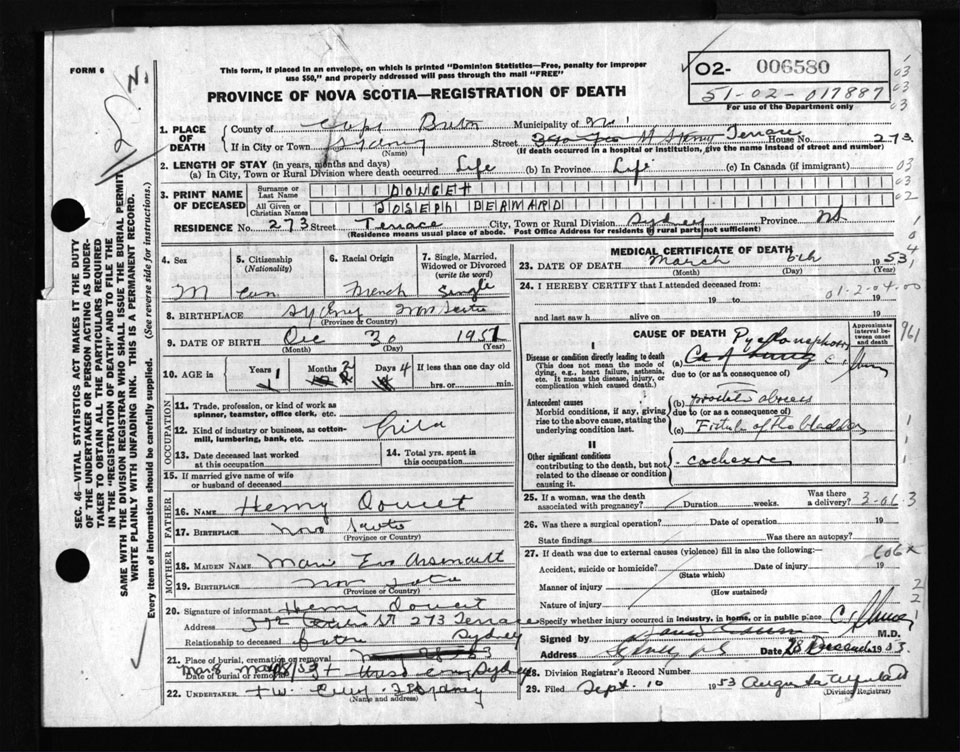 FORM 6
This form, if placed in an envelope, on which is printed "Dominion Statistics—Free, penalty for improper
use $50," and properly addressed will pass through the mail "FREE"
PROVINCE OF NOVA SCOTIA—REGISTRATION OF DEATH
02- 006580
51-02-017887
For use of the Department only
1. PLACE OF DEATH
County of Cape Breton Municipality of
If in City or Town Sydney Street Terrace House No. 273
(Name) (If death occurred in a hospital or institution, give the name instead of street and number)
2. LENGTH OF STAY (in years, months and days)
(a) In City, Town or Rural Division where death occurred Life (b) In Province Life (c) In Canada (if immigrant)
3. PRINT NAME OF DECEASED
Surname or Last Name DOUCET
All Given or Christian Names JOSEPH BERNARD
RESIDENCE No. 273 Street Terrace City, Town or Rural Division Sydney Province NS
(Residence means usual place of abode. Post Office Address for residents of rural parts not sufficient)
4. Sex M
5. Citizenship (Nationality) Can
6. Racial Origin French
7. Single, Married, Widowed or Divorced (write the word) Single
8. BIRTHPLACE Sydney Nova Scotia
(Province or Country)
9. DATE OF BIRTH Dec 30 1951
(Month) (Day) (Year)
10. AGE in Years 1 Months 2 Days 4 If less than one day old
hrs. or min.
OCCUPATION
11. Trade, profession, or kind of work as
spinner, teamster, office clerk, etc.
12. Kind of industry or business, as cotton-
mill, lumbering, bank, etc. Child
13. Date deceased last worked
at this occupation
14. Total yrs. spent in
this occupation
15. If married give name of wife
or husband of deceased
FATHER
16. NAME Henry Doucet
17. BIRTHPLACE Nova Scotia
(Province or Country)
MOTHER
18. MAIDEN NAME Marie Eva Arsenault
19. BIRTHPLACE Nova Scotia
(Province or Country)
20. Signature of informant Henry Doucet
Address 273 Terrace
Sydney
Relationship to deceased father
21. Place of burial, cremation or removal
Date of burial or removal Sydney
22. UNDERTAKER
MEDICAL CERTIFICATE OF DEATH
23. DATE OF DEATH March 6th 1953
(Month) (Day) (Year)
24. I HEREBY CERTIFY that I attended deceased from:
19 to 19
and last saw h alive on 19
01-2-04.00
CAUSE OF DEATH
Approximate interval between onset and death
I
Disease or condition directly leading to death
(This does not mean the mode of
dying, e.g., heart failure, asthenia,
etc. It means the disease, injury, or
complication which caused death.)
(a)
due to (or as a consequence of)
Antecedent causes
Morbid conditions, if any, giving
rise to the above cause, stating the
underlying condition last.
(b) prostate abscess
due to (or as a consequence of)
(c) Fistula of the bladder
II
Other significant conditions
contributing to the death, but not
related to the disease or condition
causing it.
25. If a woman, was the death
associated with pregnancy? Duration weeks. Was there
a delivery?
3-06.3
26. Was there a surgical operation? Date of operation 19
State findings Was there an autopsy?
27. If death was due to external causes (violence) fill in also the following:—
606x
Accident, suicide or homicide? Date of injury 19
(State which)
Manner of injury
(How sustained)
Nature of injury
Specify whether injury occurred in industry, in home, or in public place
Signed by M.D.
Address Date 1953
28. Division Registrar's Record Number
29. Filed Sept. 10 1953
(Division Registrar)
SEC. 46—VITAL STATISTICS ACT MAKES IT THE DUTY
OF THE UNDERTAKER OR PERSON ACTING AS UNDER-
TAKER TO OBTAIN ALL THE PARTICULARS REQUIRED
IN THE "REGISTRATION OF DEATH" AND TO FILE THE
SAME WITH THE DIVISION REGISTRAR WHO SHALL ISSUE THE BURIAL PERMIT.
WRITE PLAINLY WITH UNFADING INK. THIS IS A PERMANENT RECORD.
Every item of information should be carefully supplied. (See reverse side for instructions.)